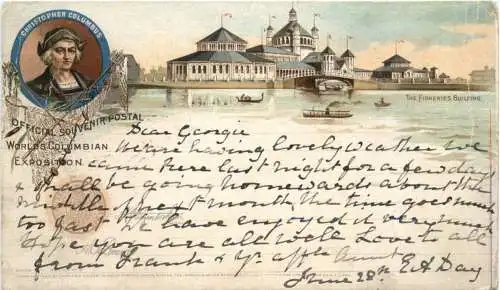 CHRISTOPHER COLUMBUS
THE FISHERIES BUILDING.
OFFICIAL SOUVENIR POSTAL
WORLD'S COLUMBIAN
EXPOSITION
Dear Georgie
We are having lovely weather we
came here last night for a few days
& shall be going homewards about the
middle of next month, the time goes much
too fast. We have enjoyed it very much
Hope you are all well Love to all
from Frank & yr affte Aunt
June 28th E A Day